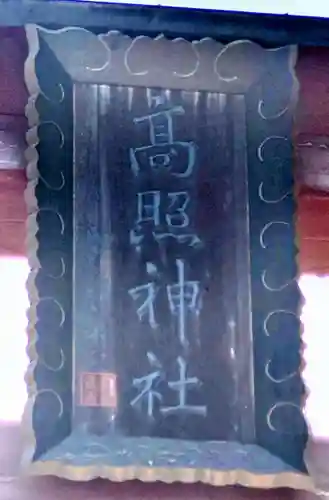 髙照神社